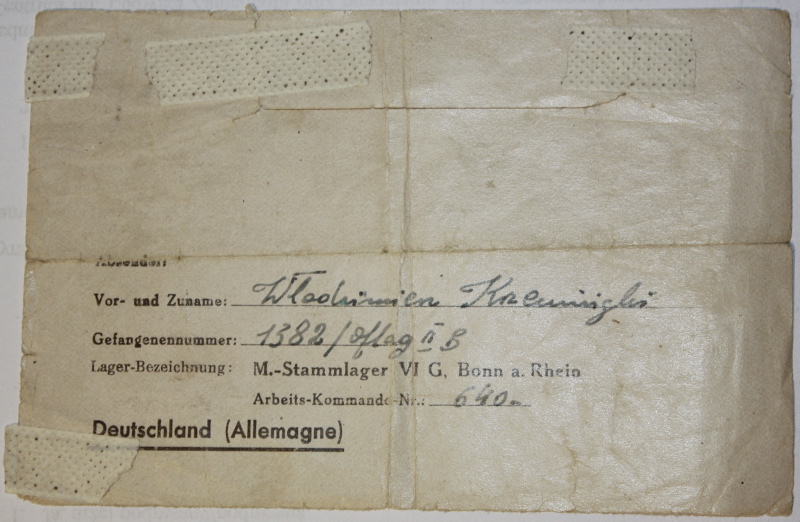 Absender:
Vor- und Zuname: Włodzimierz
Gefangenennummer: 1382/Oflag II B
Lager-Bezeichnung: M.-Stammlager VI G, Bonn a. Rhein
Arbeits-Kommando-Nr.: 640.
Deutschland (Allemagne)